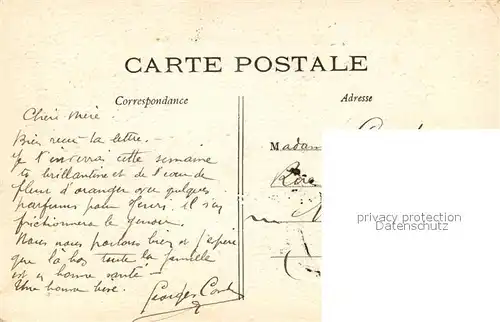 CARTE POSTALE
Correspondance
Adresse
Chère Mère
Bien reçu ta lettre. —
Je t'enverrai cette semaine
ta brillantine et de l'eau de
fleur d'oranger avec quelques
parfums pour Henri. il s'en
frictionnera le
Nous nous portons bien et j'espère
que là bas toute la famille
est en bonne santé —
Une bonne bise.
Georges
Madam
privacy protection
Datenschutz